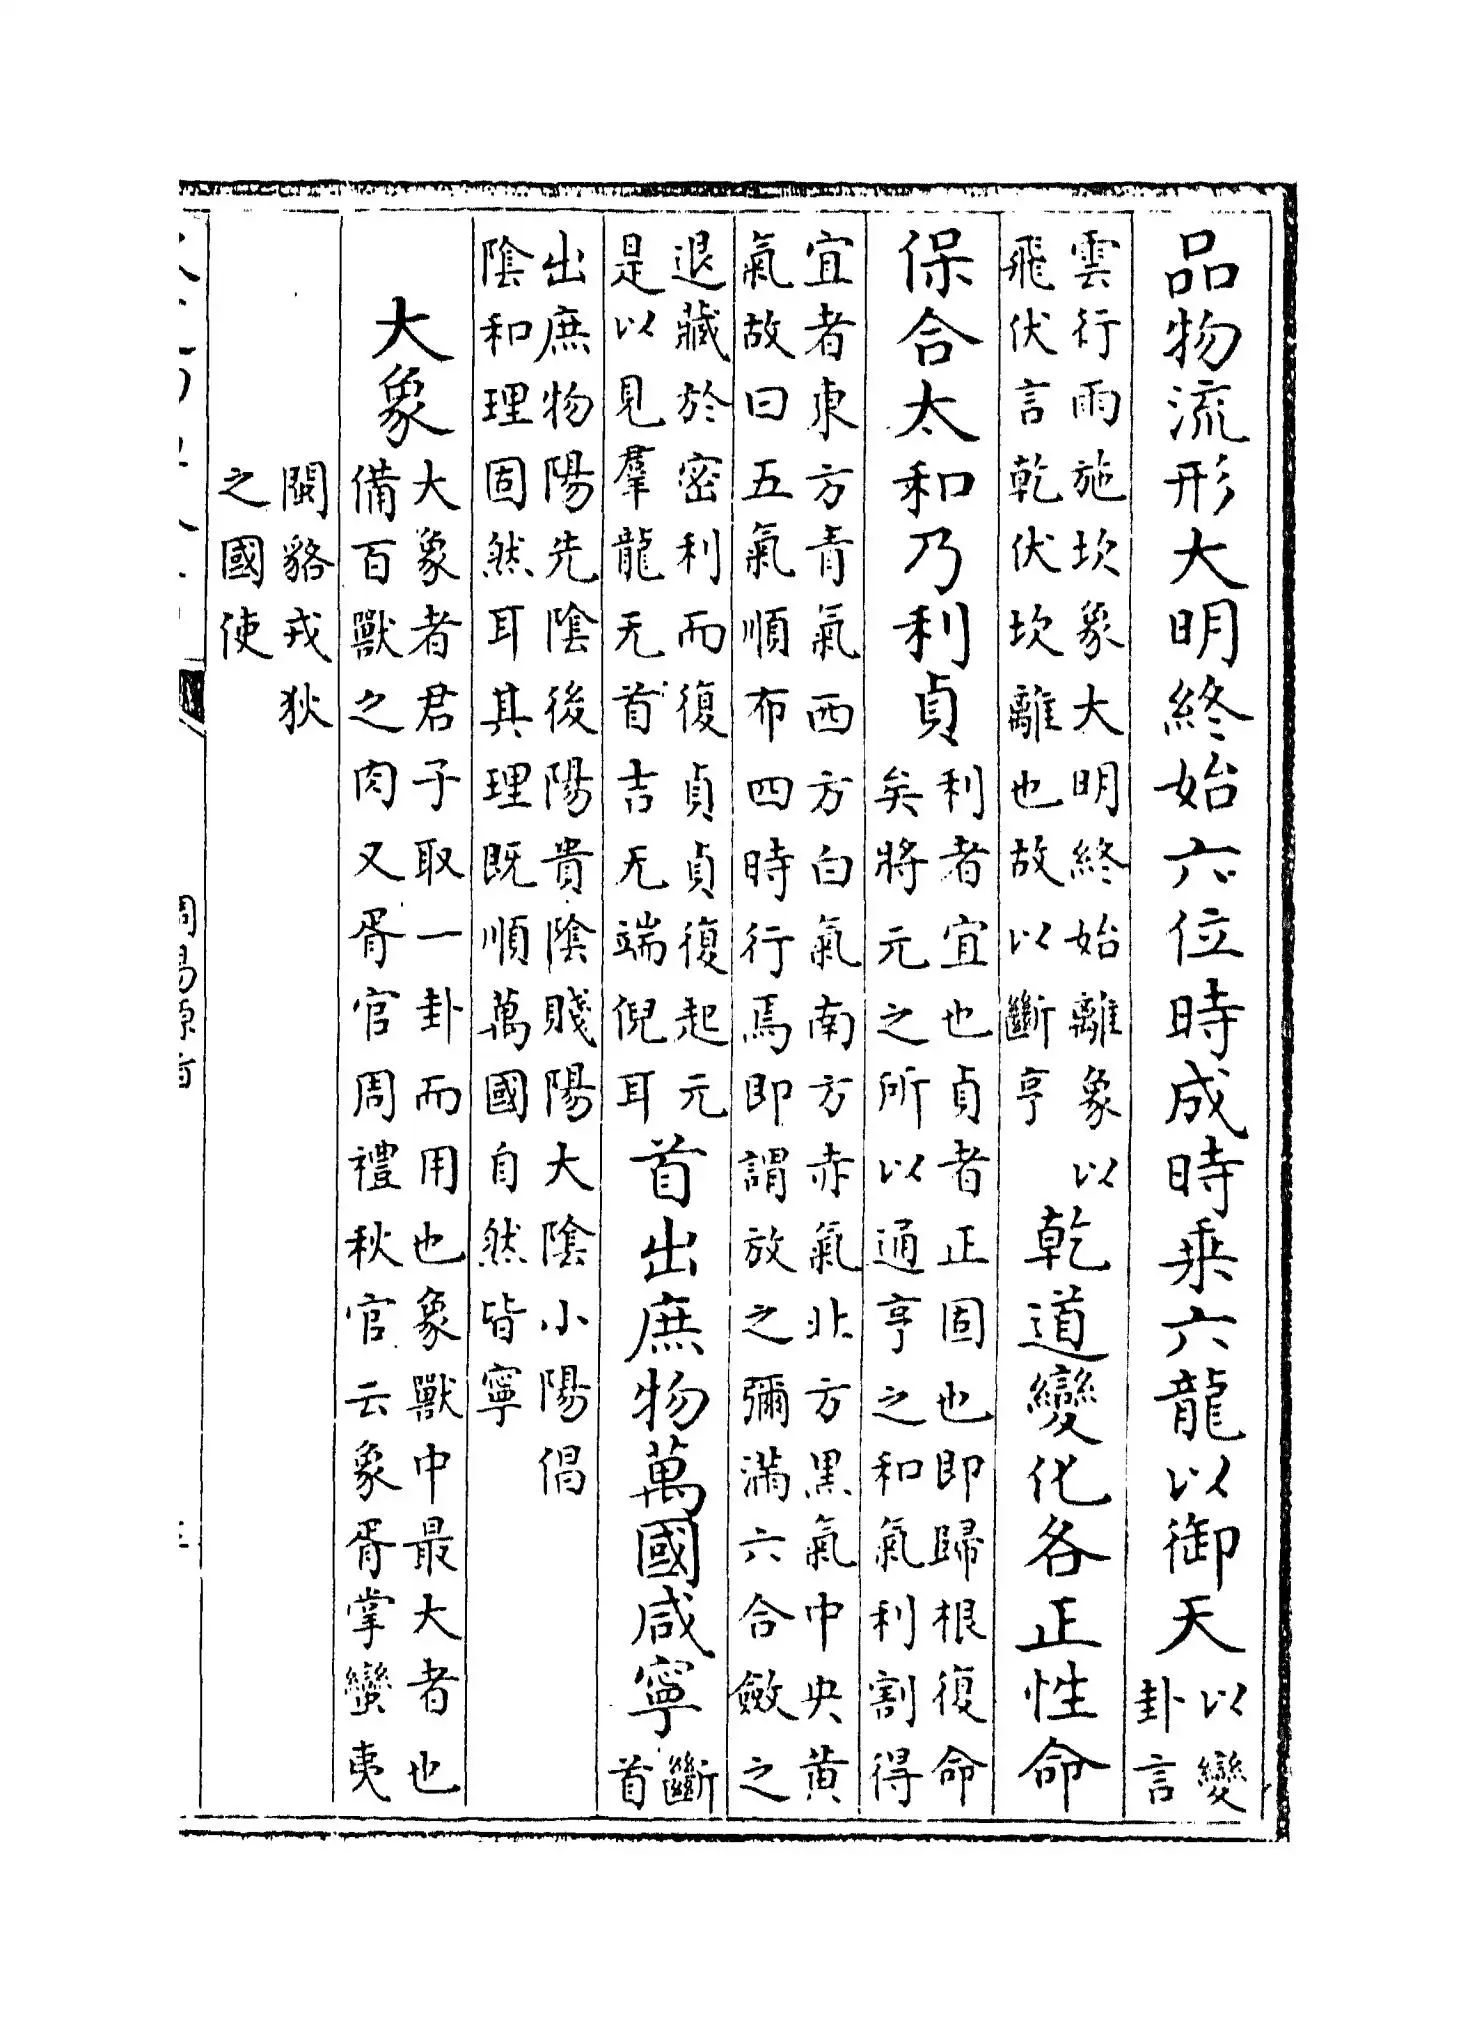 品物流形大明終始六位時成時乘六龍以御天以變
卦言
雲行雨施坎象大明終始離象以
飛伏言乾伏坎離也故以斷亨
乾道變化各正性命
保合太和乃利貞
利者宜也貞者正固也即歸根復命
矣將元之所以通亨之和氣利割得
宜者東方青氣西方白氣南方赤氣北方黑氣中央黄
氣故曰五氣順布四時行焉即謂放之彌滿六合斂之
退藏於密利而復貞貞復起元
是以見羣龍无首吉无端倪耳
首出庶物萬國咸寧
斷
首
出庶物陽先陰後陽貴陰賤陽大陰小陽倡
陰和理固然耳其理既順萬國自然皆寧
大象
大象者君子取一卦而用也象獸中最大者也
備百獸之肉又胥官周禮秋官云象胥掌蠻夷
閩貉戎狄
之國使